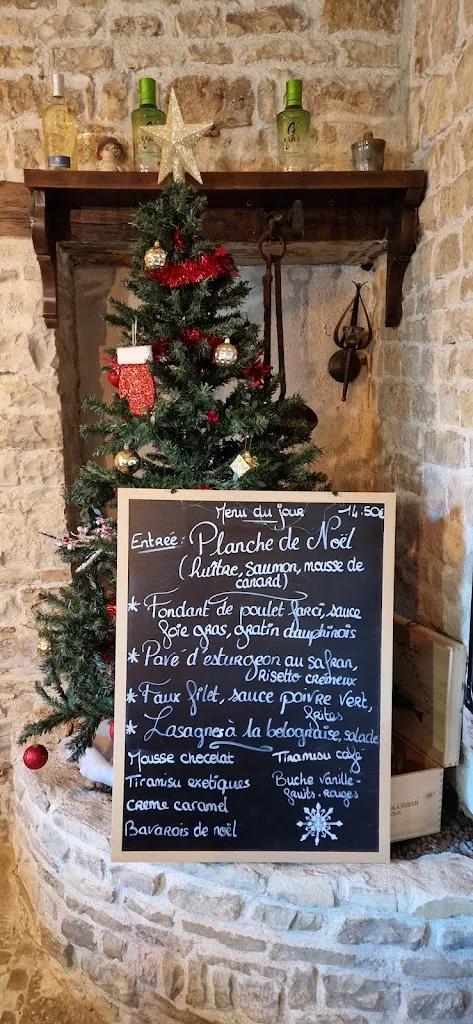 Menu du jour 14.50€
Entreé: Planche de Noël
(huître, saumon, mousse de
canard)
* Fondant de poulet farci, sauce
foie gras, gratin dauphinois
* Pavé d'esturgeon au safran,
Risotto crémeux
* Faux filet, sauce poivre vert,
frites
* Lasagnes à la bolognaise, salade
Mousse chocolat
Tiramisu exotiques
creme caramel
Bavarois de noël
Tiramisu café
Buche vanille-
fruits-rouges